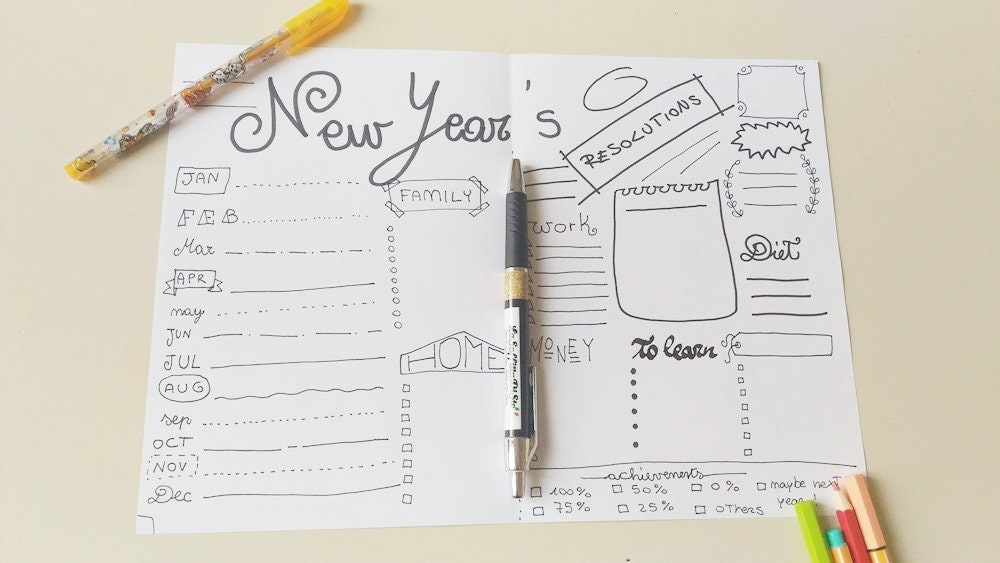 New Year's
RESOLUTIONS
JAN
FEB
Mar
APR
may
JUN
JUL
AUG
sep
OCT
NOV
Dec
FAMILY
HOME
work
MONEY
Diet
To learn
achievements
100% 50% 0% maybe next year!
75% 25% OTHERS